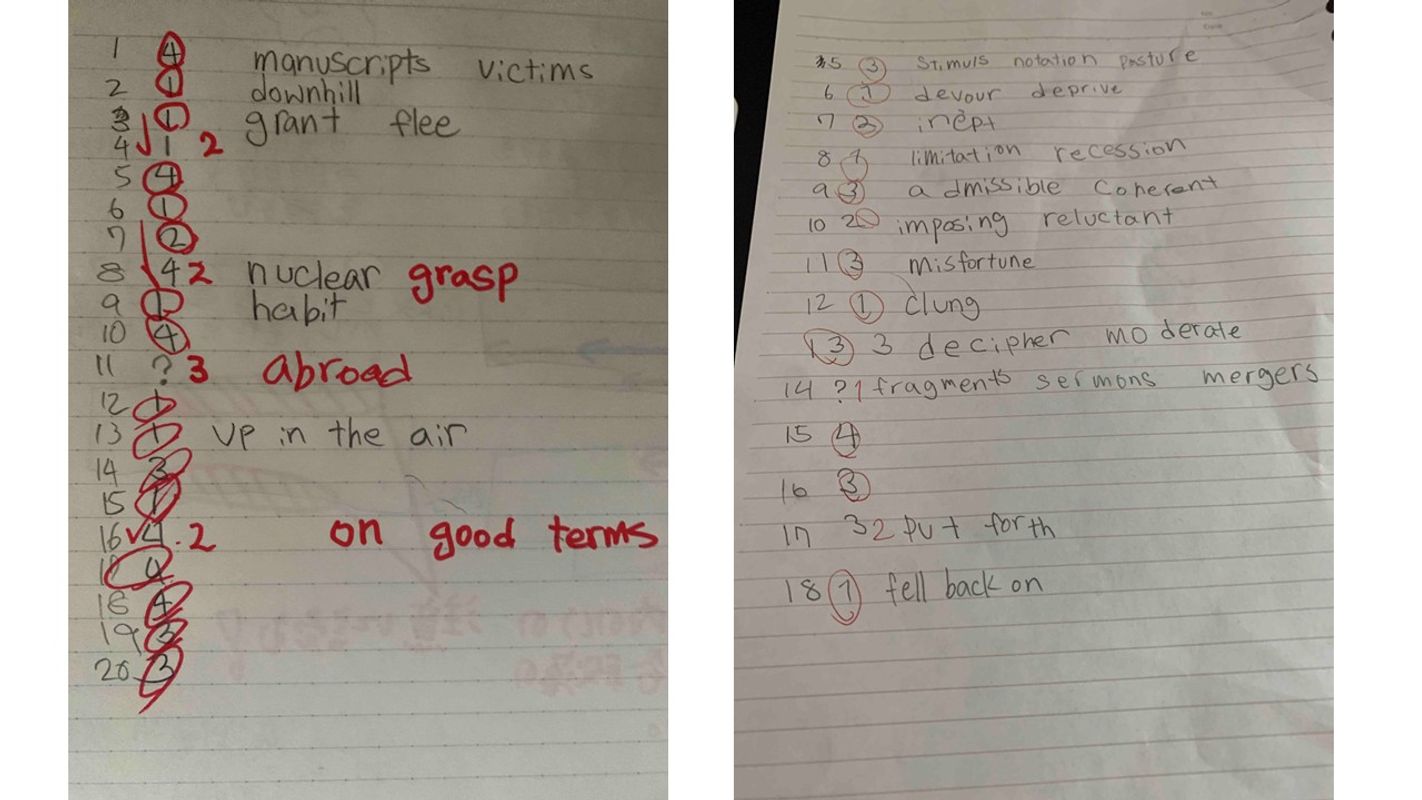 1 4 manuscripts victims
2 1 downhill
3 1 grant flee
4 1 2
5 4
6 1
7 2
8 4 2 nuclear grasp
9 1 habit
10 4
11 ? 3 abroad
12 1
13 1 up in the air
14 3
15 1
16 4. 2 on good terms
17 4
18 4
19 3
20 3
5 3 Stimuls notation pasture
6 1 devour deprive
7 2 inept
8 1 limitation recession
9 3 admissible coherent
10 2 imposing reluctant
11 3 misfortune
12 1 clung
13 3 decipher moderate
14 ? 1 fragments sermons mergers
15 4
16 3
17 3 2 put forth
18 1 fell back on